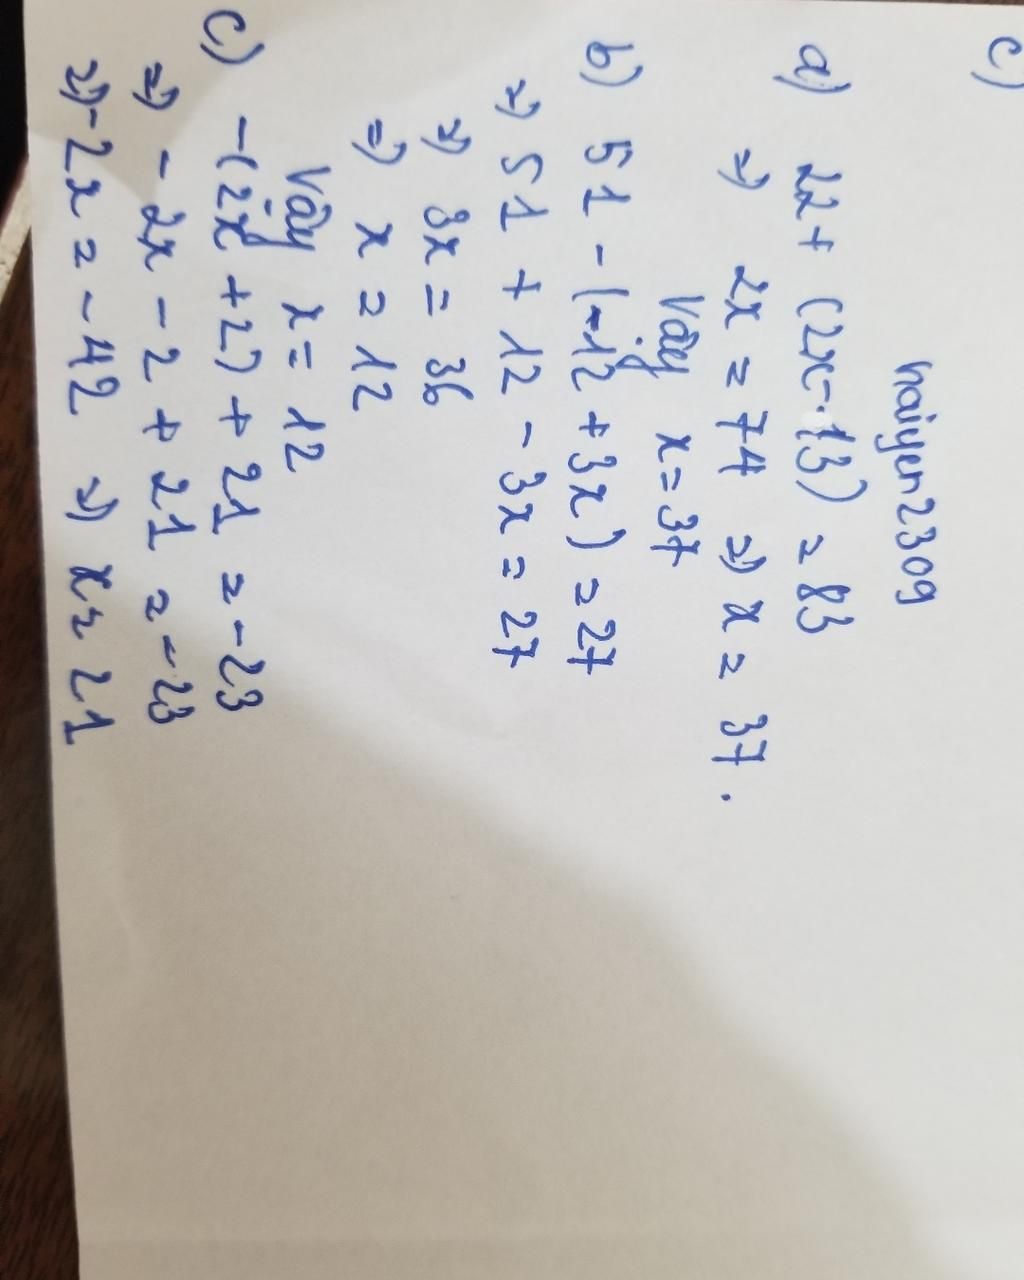 c)
haiyen2309
a) 22 + (2x - 13) = 83
=) 2x = 74 =) x = 37.
Vậy x = 37
b) 51 - (-12 + 3x) = 27
=) 51 + 12 - 3x = 27
=) 3x = 36
=) x = 12
Vậy x = 12
c) - (2x + 2) + 21 = -23
=) - 2x - 2 + 21 = -23
=) -2x = -42 =) x = 21